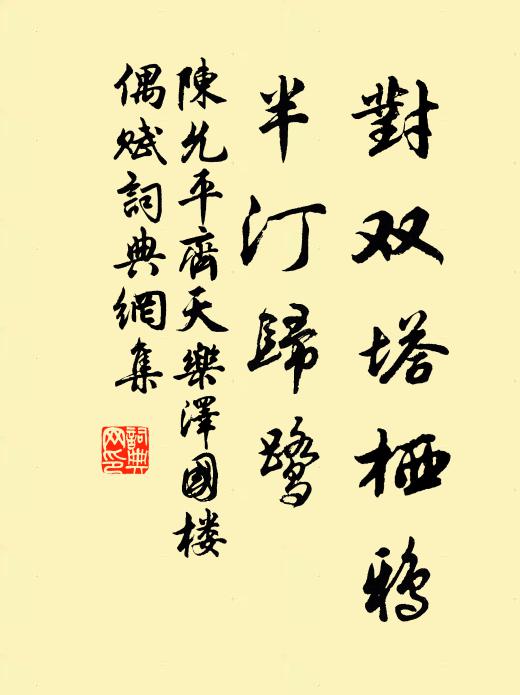 對双塔栖鸦
半汀歸鹭
陳允平齊天樂澤國楼
偶赋詞典網集
詞典网印